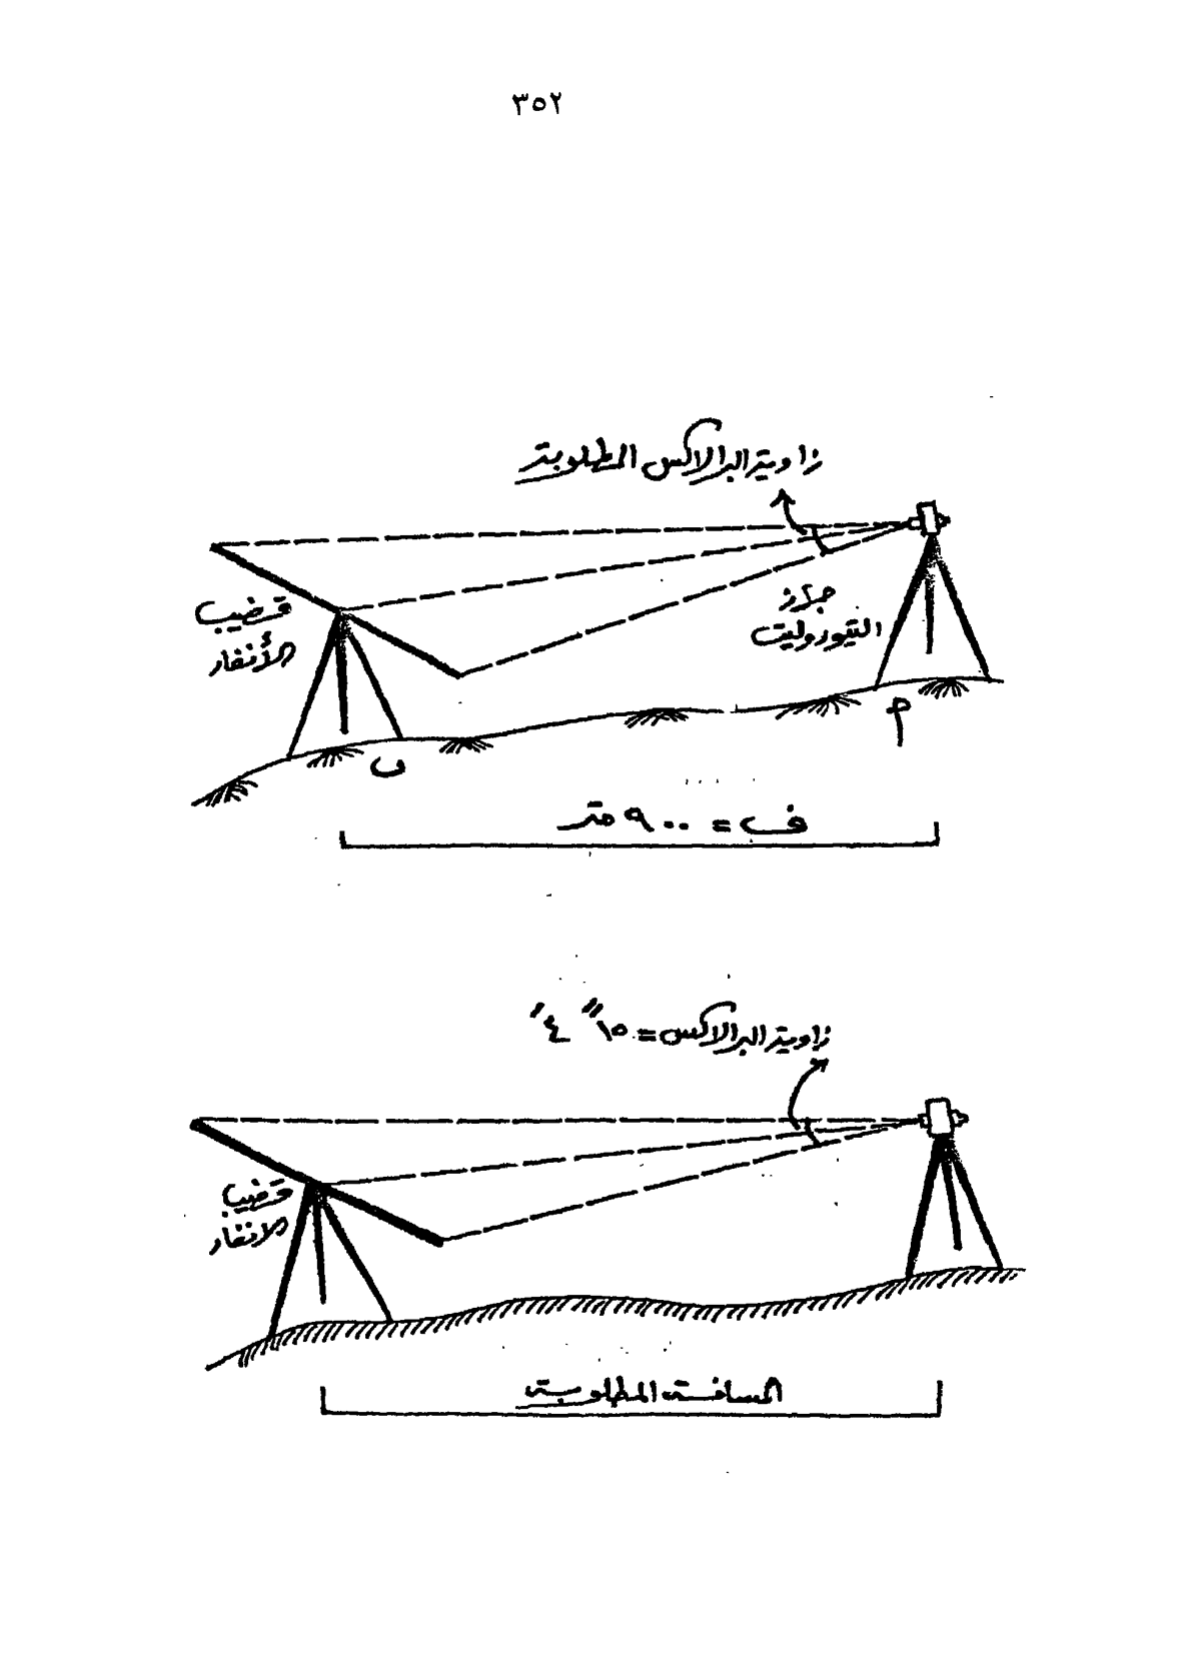 ٣٥٢
زاوية البرالاكس المطلوبة
جهاز
التيودوليت
قضيب
الأنفار
م
ف = ٩٠٠ متر
زاوية البرالاكس = ١٥ ً ٤ َ
قضيب
الانفار
المسافة المطلوبة